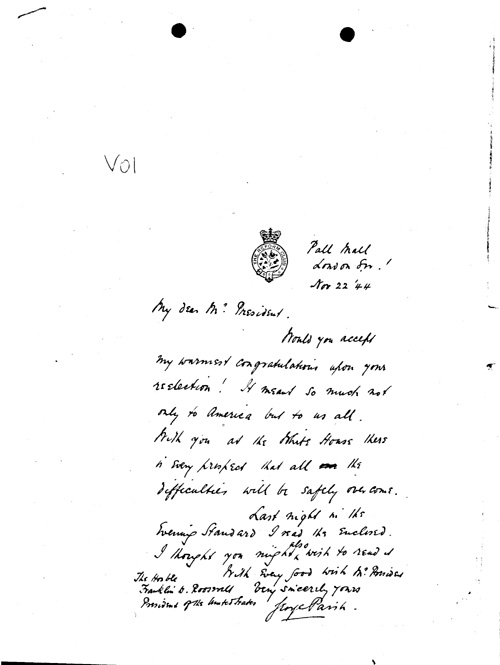 VOI
THE REFORM CLUB
Pall Mall
London S.W.1
Nov 22 '44
My dear Mr. President.
Would you accept
my warmest congratulations upon your
reelection! It meant so much not
only to America but to us all.
With you at the White House there
is every prospect that all the
difficulties will be safely overcome.
Last night in the
Evening Standard I read the enclosed.
I thought you might also wish to read it
With every good wish Mr. President
The Honble
Franklin D. Roosevelt
Very sincerely yours
President of the United States
George Paish.